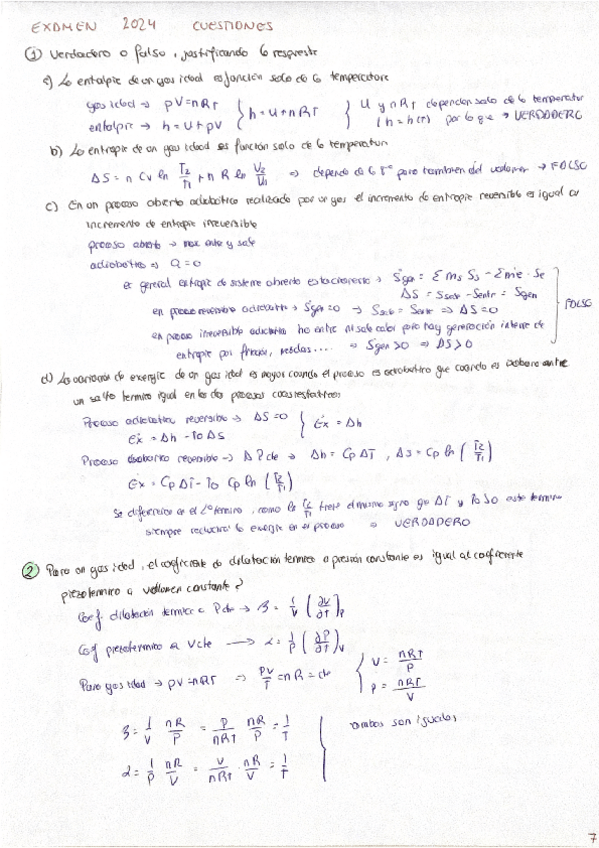 EXAMEN 2024 CUESTIONES
① Verdadero o falso, justificando la respuesta
a) La entalpia de un gas ideal es función solo de la temperatura
gas ideal → pV=nRT } h=u+nRT } u y nRT dependen solo de la temperatura
entalpia → h=u+pV (h=h(T)) por lo que → VERDADERO
b) La entropia de un gas ideal es función solo de la temperatura
ΔS = n Cv ln T2/T1 + n R ln V2/V1 ⇒ depende de la Tª pero tambien del volumen → FALSO
c) En un proceso abierto adiabatico realizado por un gas el incremento de entropia reversible es igual al
incremento de entropia irreversible
proceso abierto → masa entra y sale
adiabatico ⇒ Q=0
en general entropia de sistema abierto estacionario → Sgen = Σ ms Ss - Σ me · Se
ΔS = Ssale - Sentr = Sgen
en proceso reversible adiabatico → Sgen=0 → Ssale = Sentr ⇒ ΔS=0 } FALSO
en proceso irreversible adiabatico no entra ni sale calor pero hay generación interna de
entropia por fricción, mezclas.... ⇒ Sgen>0 ⇒ ΔS>0
d) La variación de exergia de un gas ideal es mayor cuando el proceso es adiabatico que cuando es isobaro ante
un salto termico igual en los dos procesos
Proceso adiabatico reversible → ΔS=0 } Ėx = Δh
Ėx = Δh - To ΔS
Proceso isobarico reversible → Δ P cte → Δh = Cp ΔT, ΔS = Cp ln (T2/T1)
Ėx = Cp ΔT - To Cp ln (T2/T1)
Se diferencian en el 2º termino, como ln T2/T1 tiene el mismo signo que ΔT y To>0 este termino
siempre reducira la exergia en el proceso ⇒ VERDADERO
② Para un gas ideal, el coeficiente de dilatación termica a presión constante es igual al coeficiente
piezotermico a volumen constante?
Coef. dilatación termica a P cte → β = 1/V (∂V/∂T)p
Coef piezotermico a V cte → α = 1/P (∂P/∂T)v
Para gas ideal → pV=nRT ⇒ PV/T = nR = cte { V = nRT/P
P = nRT/V
β = 1/V nR/P = P/nRT nR/P = 1/T } ambos son iguales
α = 1/P nR/V = V/nRT · nR/V = 1/T
7